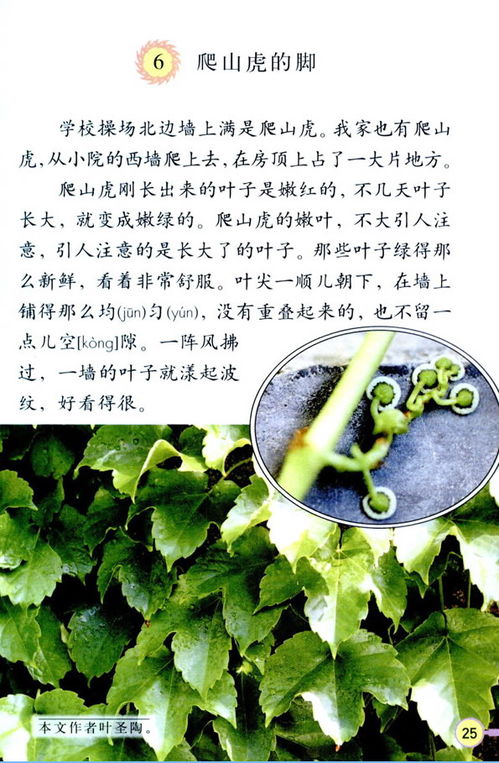 6 爬山虎的脚
学校操场北边墙上满是爬山虎。我家也有爬山
虎,从小院的西墙爬上去,在房顶上占了一大片地方。
爬山虎刚长出来的叶子是嫩红的,不几天叶子
长大,就变成嫩绿的。爬山虎的嫩叶,不大引人注
意,引人注意的是长大了的叶子。那些叶子绿得那
么新鲜,看着非常舒服。叶尖一顺儿朝下,在墙上
铺得那么均(jūn)匀(yún),没有重叠起来的,也不留一
点儿空[kòng]隙。一阵风拂
过,一墙的叶子就漾起波
纹,好看得很。
本文作者叶圣陶。
25